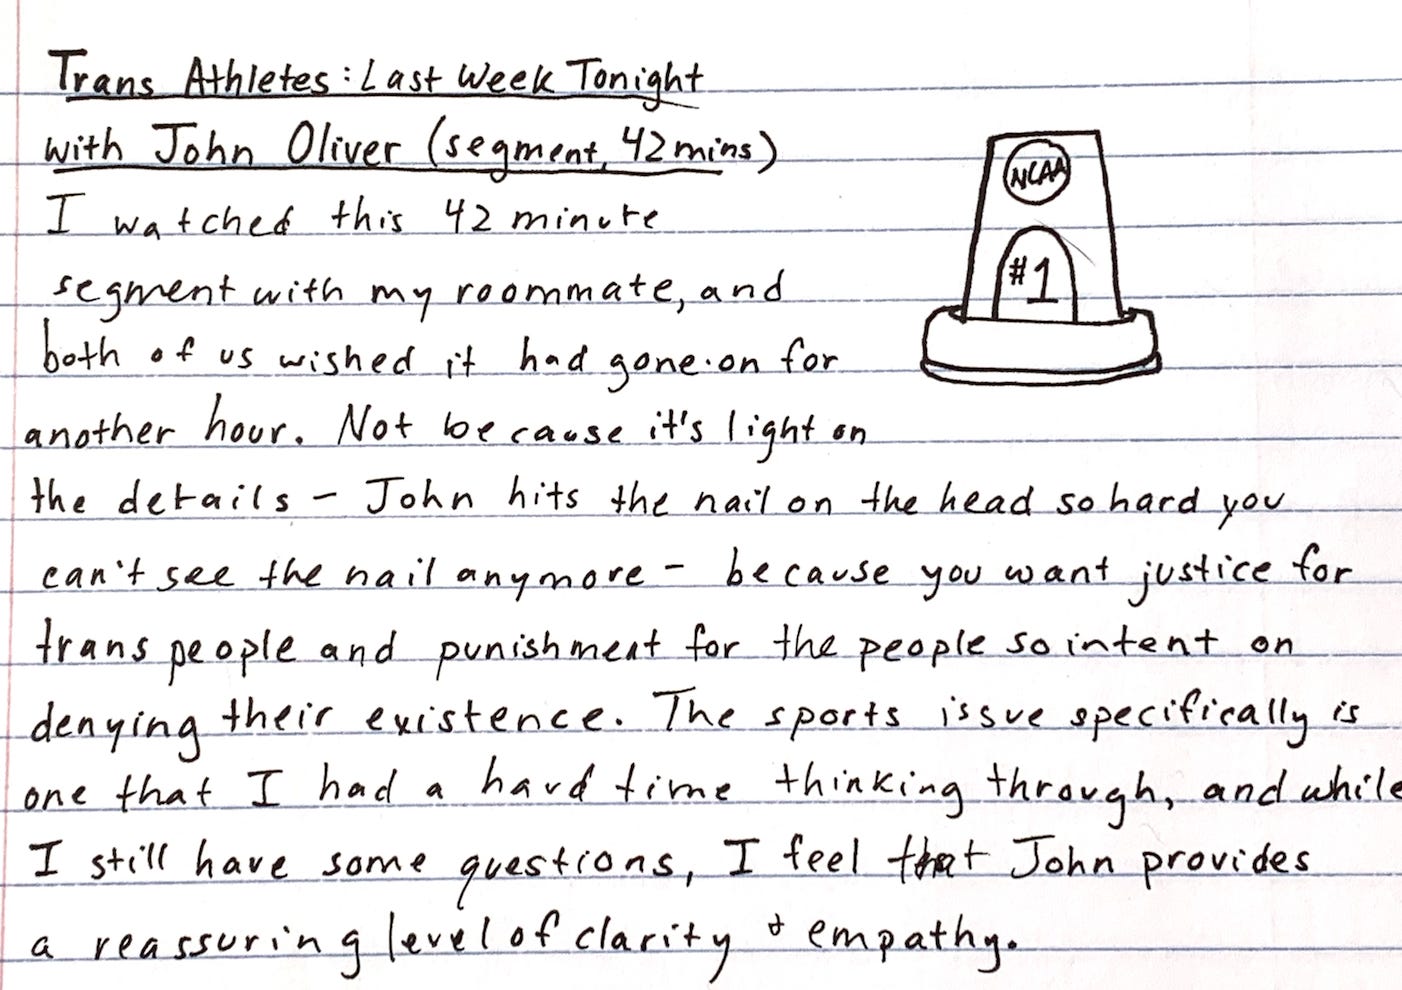 Trans Athletes: Last Week Tonight
with John Oliver (segment, 42 mins)
NCAA
I watched this 42 minute
#1
segment with my roommate, and
both of us wished it had gone on for
another hour. Not because it's light on
the details – John hits the nail on the head so hard you
can't see the nail anymore – because you want justice for
trans people and punishment for the people so intent on
denying their existence. The sports issue specifically is
one that I had a hard time thinking through, and while
I still have some questions, I feel that John provides
a reassuring level of clarity & empathy.